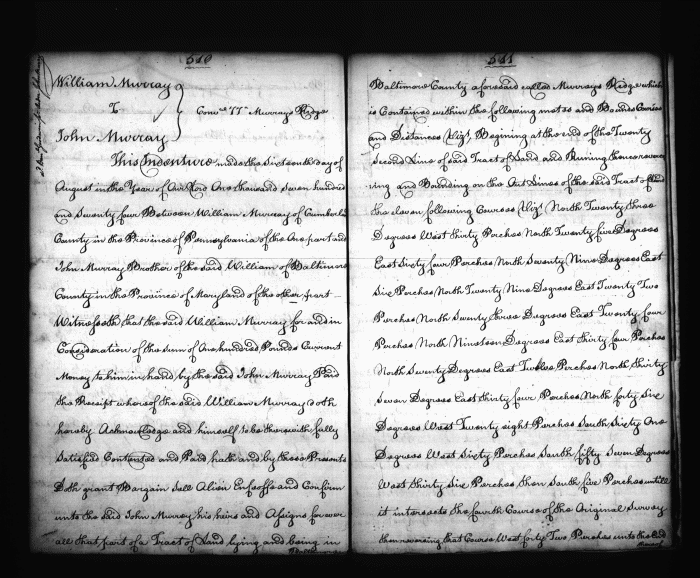 540
William Murray
To
Conv.ce 77 Murrays Ridge
John Murray
This Indenture made the Sixteenth day of
August in the Year of Our Lord One thousand Seven hundred
and Seventy four Between William Murray of Cumberld
County in the Province of Pennsylvania of the One part and
John Murray Brother of the said William of Baltimore
County in the Province of Maryland of the other part
Witnesseth that the said William Murray for and in
Consideration of the sum of One hundred Pounds Current
Money to him in hand by the said John Murray Paid
the Receipt whereof the said William Murray doth
hereby Acknowledge and himself to be therewith fully
Satisfied Contented and Paid, hath and by these Presents
Doth grant Bargain Sell Alien Enfeoffe and Confirm
unto the said John Murray his heirs and Assigns for ever
all that part of a Tract of Land lying and being in
541
Baltimore County aforesaid called Murrays Ridge which
is Contained within the following metes and Bounds Courses
and Distances Vizt, Begining at the end of the Twenty
Second Line of said Tract of Land and Runing thence
ing and Bounding on the Out Lines of the said Tract of Land
the eleven following Courses Vizt North Twenty three
Degrees West thirty Perches North Twenty five Degrees
East Sixty four Perches North Seventy Nine Degrees East
Six Perches North Twenty Nine Degrees East Twenty Two
Perches North Seventy three Degrees East Twenty four
Perches North Nineteen Degrees East thirty four Perches
North Seventy Degrees East Twelve Perches North Thirty
Seven Degrees East thirty four Perches North forty Six
Degrees West Twenty eight Perches South Sixty One
Degrees West Sixty Perches South fifty Seven Degrees
West Thirty Six Perches then South five Perches untill
it intersects the fourth Course of the Original Survey
then reversing that Course West forty Two Perches unto the End
thereof